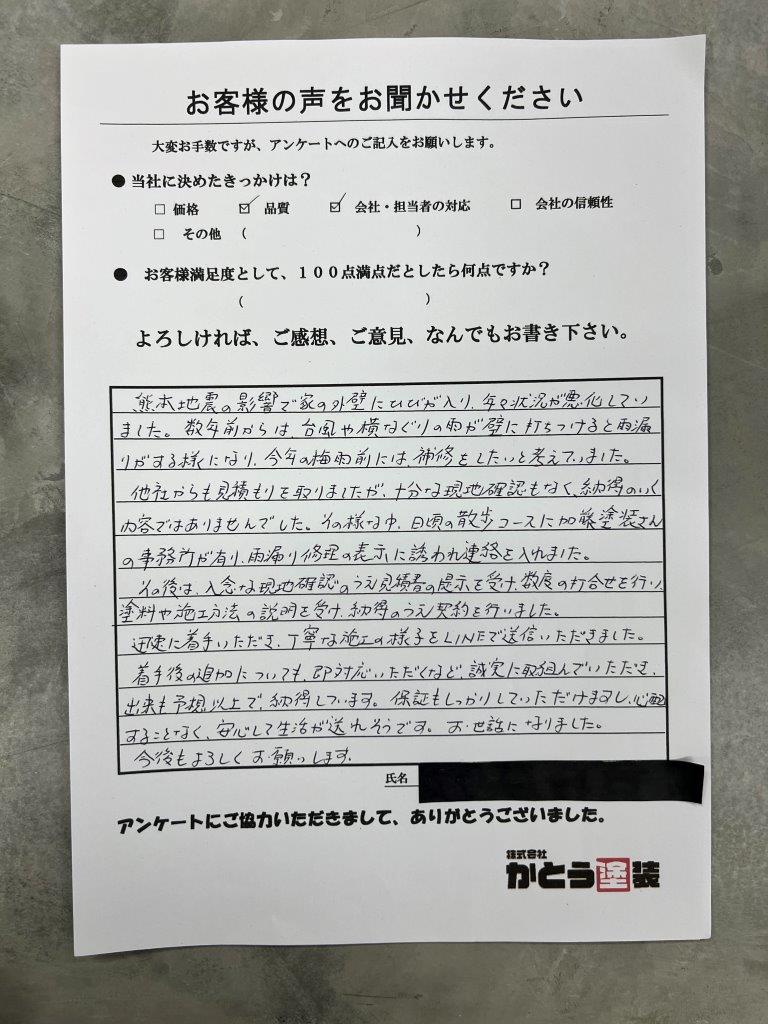 お客様の声をお聞かせください
大変お手数ですが、アンケートへのご記入をお願いします。
● 当社に決めたきっかけは？
□ 価格 ☑ 品質 ☑ 会社・担当者の対応 □ 会社の信頼性
□ その他 （ ）
● お客様満足度として、１００点満点だとしたら何点ですか？
（ ）
よろしければ、ご感想、ご意見、なんでもお書き下さい。
熊本地震の影響で家の外壁にひびが入り、年々状況が悪化してい
ました。数年前からは、台風や横なぐりの雨が壁に打ちつけると雨漏
りがする様になり、今年の梅雨前には、補修をしたいと考えていました。
他社からも見積もりを取りましたが、十分な現地確認もなく、納得のいく
内容ではありませんでした。その様な中、日頃の散歩コースに加藤塗装さん
の事務所が有り、雨漏り修理の表示に誘われ連絡を入れました。
その後は、入念な現地確認のうえ見積書の提示を受け、数度の打合せを行い、
塗料や施工方法の説明を受け、納得のうえ契約を行いました。
迅速に着手いただき、丁寧な施工の様子をLINEで送信いただきました。
着手後の追加についても、即対応いただくなど、誠実に取組んでいただき、
出来も予想以上で、納得しています。保証もしっかりしていただけますし、心配
することなく、安心して生活が送れそうです。お世話になりました。
今後もよろしくお願いします。
氏名
アンケートにご協力いただきまして、ありがとうございました。
株式会社
かとう塗装